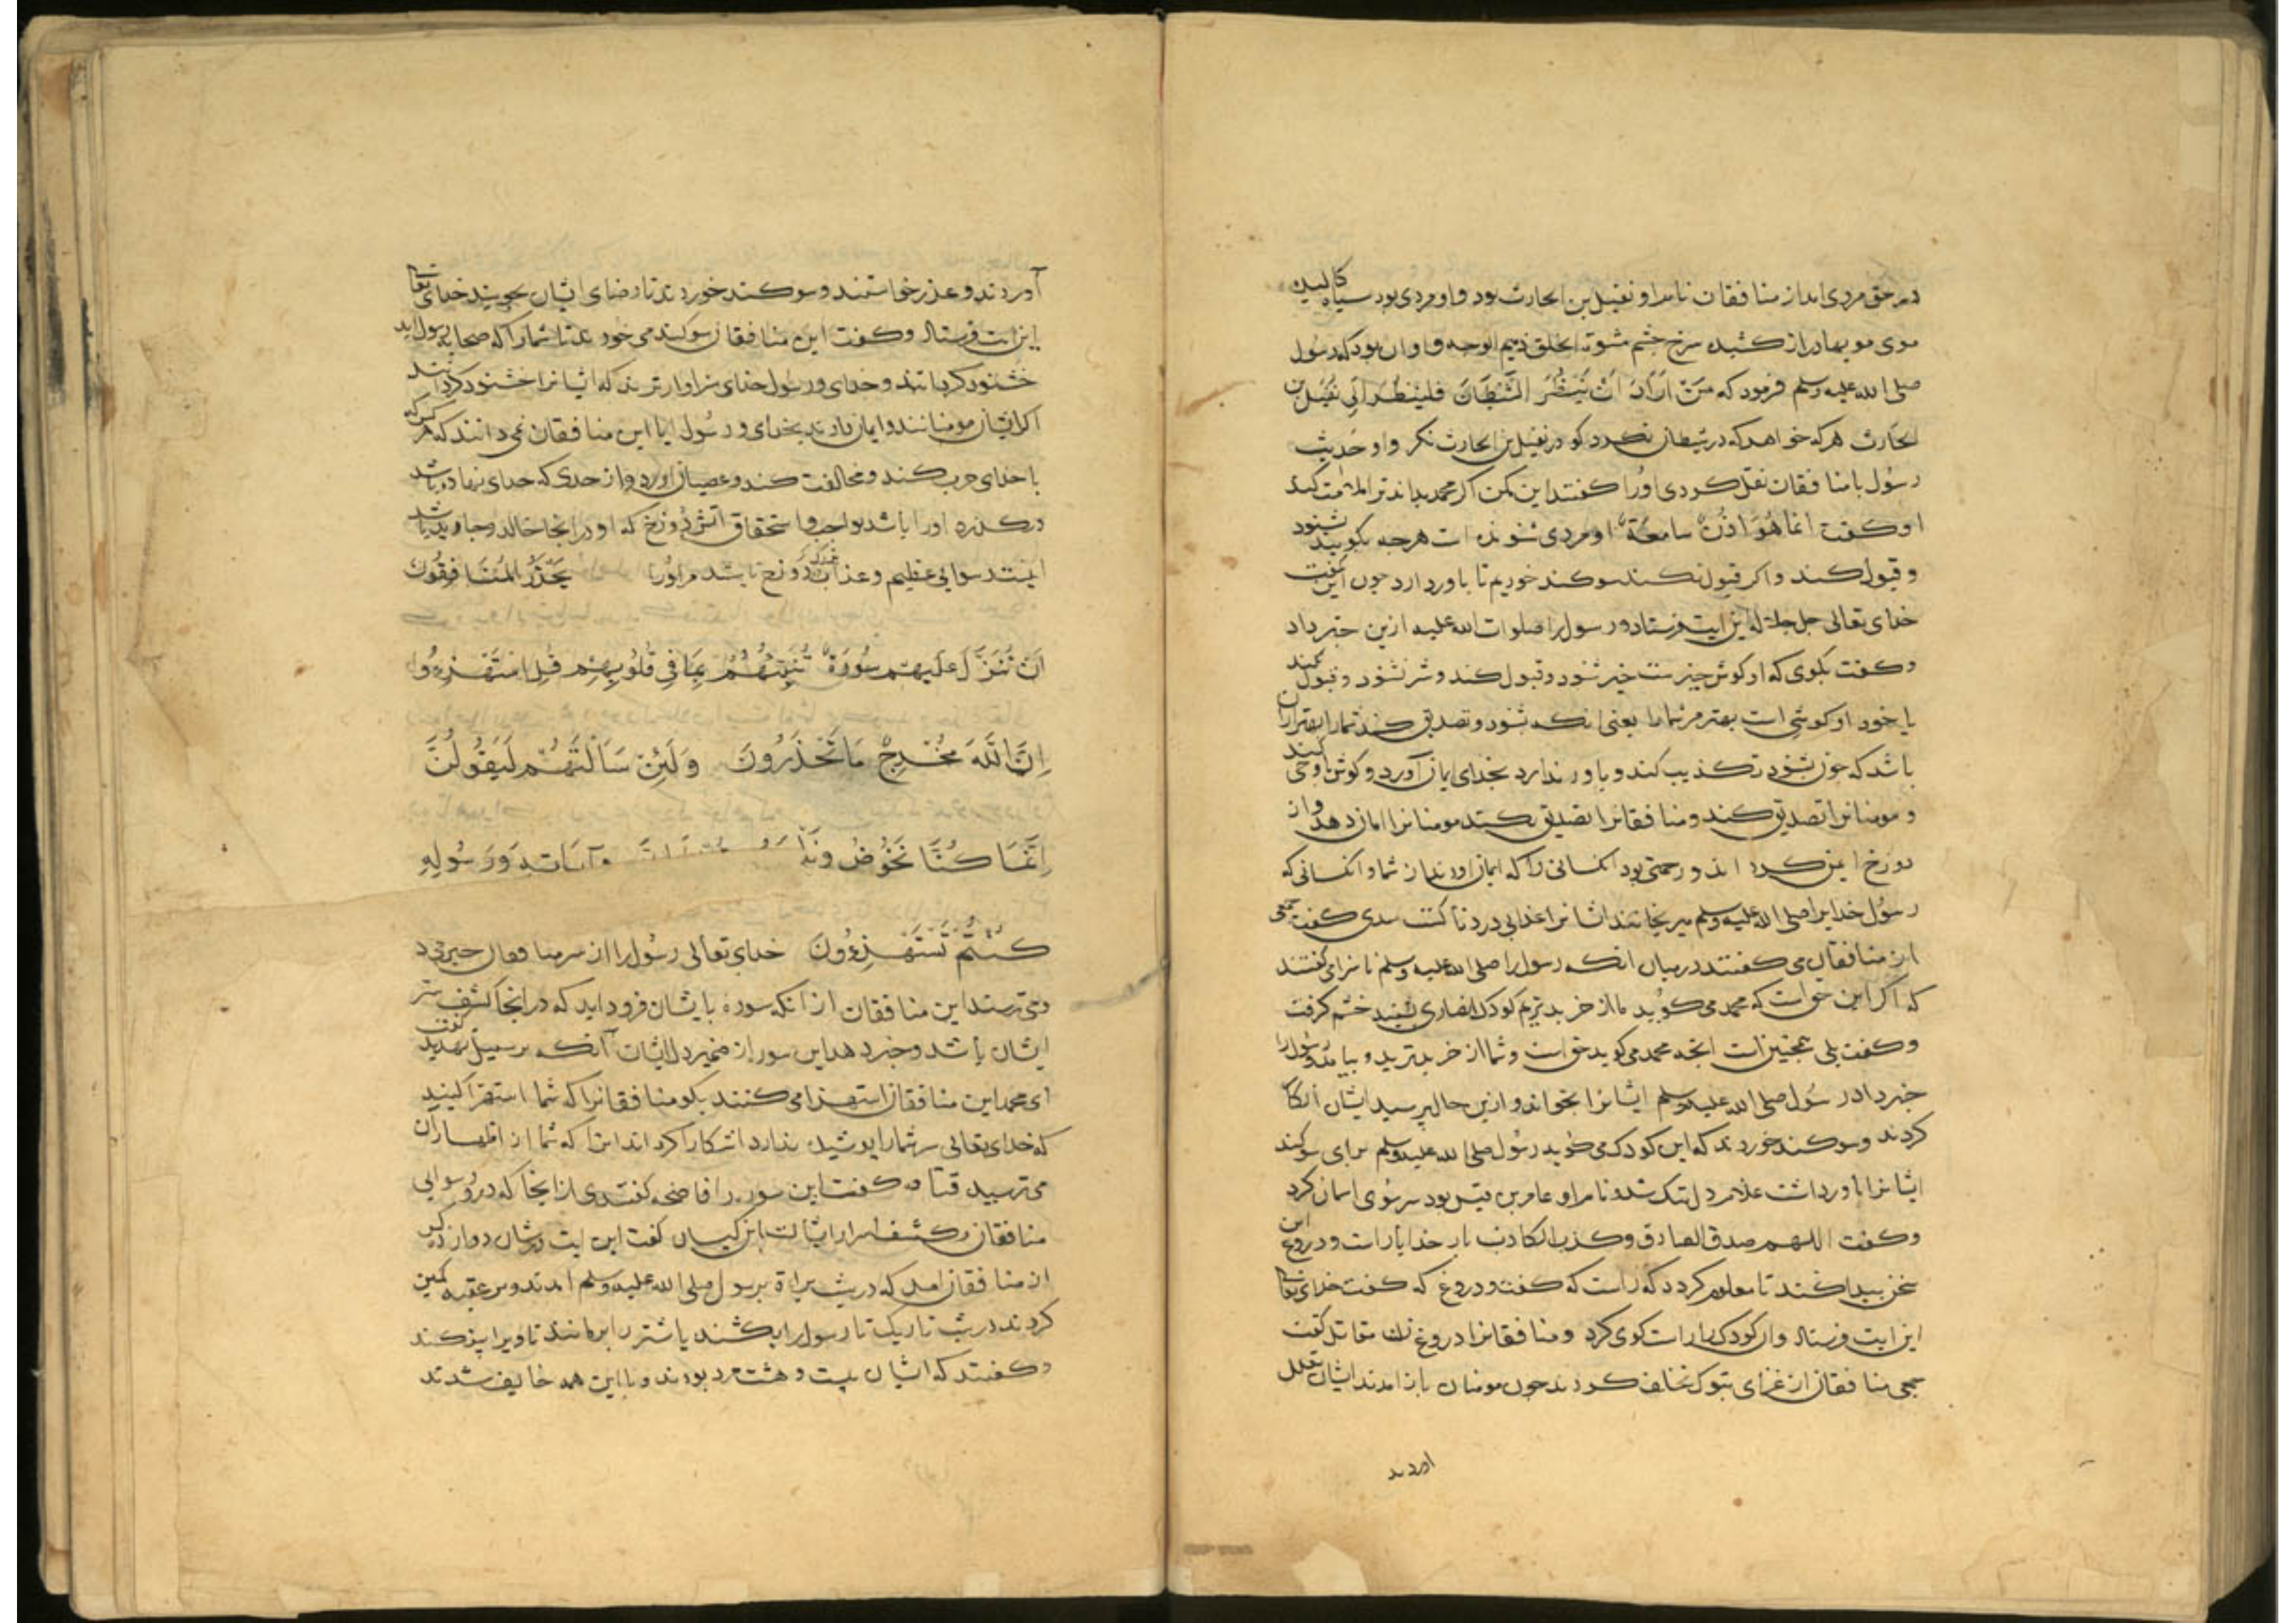 در حق مردی امد از منافقان نام او نفیل بن الحارث بود و او مردی بود سیاه کالیده
موی مویها دراز کشیده سرخ چشم مشوّه الخلق ذمیم الوجه و او ان بود که رسول
صلی الله علیه وسلم فرمود که مَنْ اَرَادَ اَنْ یَنظُرَ الشَّیْطَانَ فَلْیَنْظُرْ اِلَی نفَیل بن
الحارث هر که خواهد که در شیطان نکرد کو در نفیل بن الحارث نکر و او حدیث
رسول با منافقان نقل کردی او را کفتند این مکن اکر محمد بداند ترا ملامت کند
او کفت انما هُوَ اُذُنٌ سامعَة او مردی شنونده است هرچه بکویید بشنود
و قبول کند و اکر قبول نکند سوکند خوریم تا باور دارد چون این بکفت
خدای تعالی جل جلاله این ایت فرستاد و رسول را صلوات الله علیه ازین خبر داد
و کفت بکوی که او کوش خیر ست خیر شنود و قبول کند و شر نشنود و قبول نکند
یا خود او کوشی است بهتر مر شما را یعنی انکه شنود و تصدیق کند شما را بهتر از ان
باشد که چون بشنود تکذیب کند و باور ندارد بخدای ایمان آورد و کوش او حی کند
و مومنانرا تصدیق کند و منافقانرا تصدیق نکند مومنانرا امان دهد و از
دوزخ ایمن کرد اند و رحمتی بود انکسانی را که ایمان اورند از شما و انکسانی که
رسول خدایرا صلی الله علیه وسلم میرنجانند ایشانرا عذابی دردناکست سدی کفت جمعی
از منافقان می کفتند در میان انکه رسول را صلی الله علیه وسلم ناسزا می کفتند
که اکر این حق است که محمد می کوید ما از خر بدتریم کودک انصاری بشنید خشم کرفت
و کفت بلی همچنین است انچه محمد می کوید حق است و شما از خر بدترید و بیامد و رسول را
خبر داد رسول صلی الله علیه وسلم ایشانرا بخواند و ازین حال پرسید ایشان انکار
کردند و سوکند خوردند که این کودک می کوید رسول صلی الله علیه وسلم برای سوکند
ایشانرا باور داشت غلام دل تنک شد و نام او عامر بن قیس بود سر سوی اسمان کرد
و کفت اللهم صدق الصادق و کذب الکاذب بار خدایا راست و دروغ این
سخن پیدا کند تا معلوم کردد که راست که کفت و دروغ که کفت خدای تعالی
این ایت فرستاد و ان کودک را راست کوی کرد و منافقانرا دروغ زن مقاتل کفت
جمعی منافقان از غزای تبوک تخلف کردند چون مومنان باز امدند ایشان تعلل
اوردند
آوردند و عذر خواستند و سوکند خوردند تا رضای ایشان بجویند خدای تعالی
این ایت فرستاد و کفت این منافقان سوکند می خورند تا شما را که صحابه رسول اید
خشنود کردانند و خدای و رسول خدای سزاوارترند که ایشانرا خشنود کردانند
اکر ایشان مومنانند و ایمان دارند بخدای و رسول ایا این منافقان نمی دانند که هر کس که
با خدای حرب کند و مخالفت کند و عصیان اورد و از حدی که خدای نهاده باشد
درکذرد او را باشد بواجب و استحقاق آتش دوزخ که او در انجا خالد و جاوید باشد
اینست رسوایی عظیم و عذاب دوزخ باشد مر او را یَحْذَرُ الْمُنَافِقُونَ
اَنْ تُنَزَّلَ عَلَیهِم سُورَةٌ تُنَبِّئُهُمْ بِمَا فِی قُلُوبِهِم قُلِ اسْتَهْزِءُوا
اِنَّ اللّٰهَ مُخْرِجٌ مَا تَحْذَرُونَ وَلَئِنْ سَاَلْتَهُمْ لَیَقُولُنَّ
اِنَّمَا کُنَّا نَخُوضُ وَنَلْعَبُ وَآیَاتِهِ وَرَسُولِهِ
کُنْتُمْ تَسْتَهْزِءُونَ خدای تعالی رسول را از سر منافقان خبر داد
و می ترسند این منافقان از انکه سوره بایشان فرود اید که در انجا کشف ستر
ایشان باشد و خبر دهد این سوره از ضمیر دل ایشان آنکه بر سبیل تهدید کفت
ای محمد این منافقان استهزا می کنند بکو منافقانرا که شما استهزا کنید
که خدای تعالی سر شما را پوشیده ندارد اشکارا کرداند انرا که شما از اظهار ان
می ترسید قتاده کفت این سوره را فاضحه کفتندی از انجا که در و رسوایی
منافقان و کشف اسرار ایشانست ابن کیسان کفت این ایت در شان دوازده کس
از منافقان امد که در شب براة بر رسول صلی الله علیه وسلم امدند و بر عقبه کمین
کردند در شب تاریک تا رسول را بکشند یا شتر را برمانند تا ویرا بیفکند
و کفتند که ایشان بیست و هشت مرد بودند و با این همه خایف شدند